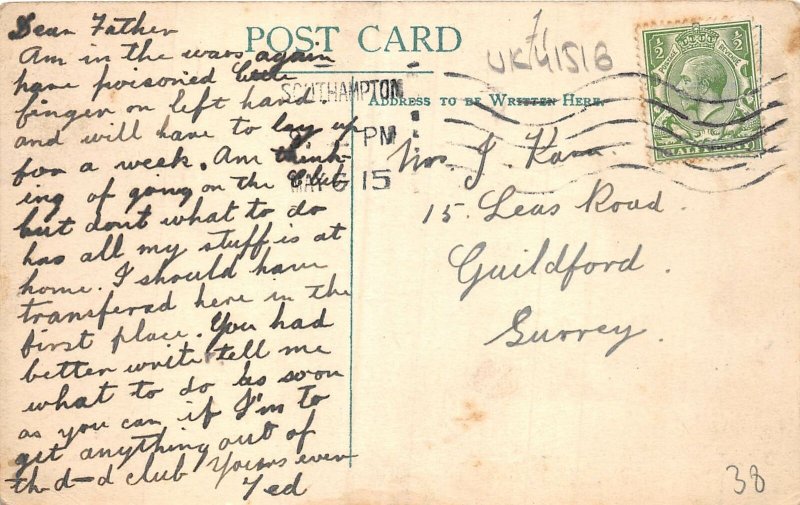 POST CARD
UK41516
Dear Father
Am in the wars again
have poisoned little
finger on left hand
and will have to lay up
for a week. Am think-
ing of going on the Club
but dont what to do
has all my stuff is at
home. I should have
transferad here in the
first place. You had
better write tell me
what to do as soon
as you can if I'm to
get anything out of
th d-d club Yours ever
Ted
SOUTHAMPTON
PM
15
ADDRESS TO BE WRITTEN HERE.
J.
15. Leas Road.
Guildford.
Surrey.
½ ½
HALFPENNY
38